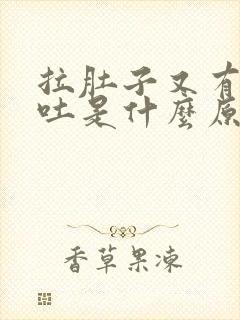 拉肚子又有
吐是什麼原
香草果凍